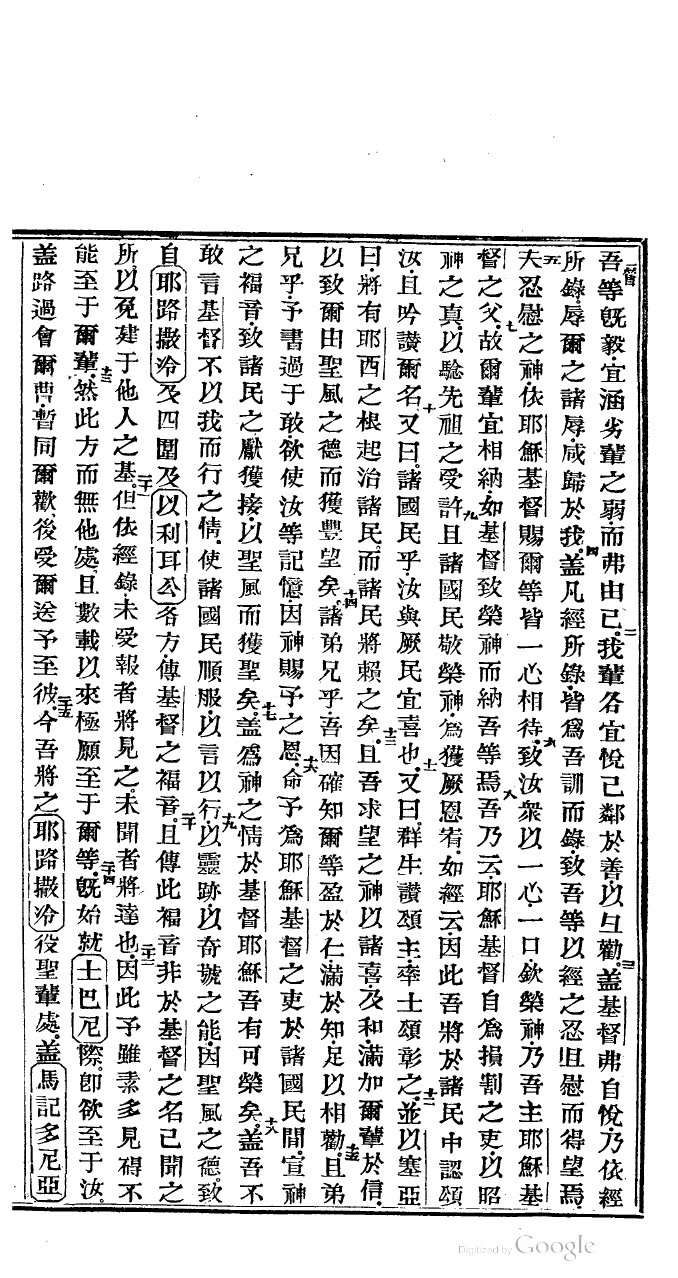 吾等旣毅、宜涵劣輩之弱、而弗由己。我輩各宜悅己鄰於善以㠯勸。盖基督弗自悅、乃依經
所錄、辱爾之諸辱、咸歸於我。盖凡經所錄、皆爲吾訓而錄、致吾等以經之忍且慰而得望焉。
夫忍慰之神、依耶穌基督賜爾等皆一心相待、致汝衆以一心一口、欽榮神、乃吾主耶穌基
督之父。故爾輩宜相納、如基督致榮神而納吾等焉。吾乃云、耶穌基督自爲損割之吏、以昭
神之真、以驗先祖之受許。且諸國民敬榮神、爲獲厥恩宥、如經云、因此吾將於諸民中認頌
汝、且吟讚爾名。又曰、諸國民乎、汝與厥民宜喜也。又曰、群生讚頌主、率士頌彰之。並以塞亞
曰、將有耶西之根起治諸民、而諸民將賴之矣。且吾求望之神以諸喜及和、滿加爾輩於信、
以致爾由聖風之德而獲豐望矣。諸弟兄乎、吾因確知爾等盈於仁滿於知、足以相勸。且弟
兄乎、予書過于敢、欲使汝等記憶、因神賜予之恩、命予爲耶穌基督之吏於諸國民間、宣神
之福音、致諸民之獻獲接、以聖風而獲聖矣。盖爲神之情於基督耶穌吾有可榮矣。盖吾不
敢言基督不以我而行之情、使諸國民順服、以言以行、以靈跡、以奇號之能、因聖風之德、致
自耶路撒冷及四圍及以利耳公各方傳基督之福音。且傳此福音非於基督之名已聞之
所、以免建于他人之基。但依經錄、未受報者將見之、未聞者將達也。因此予雖素多見碍不
能至于爾輩、然此方而無他處、且數載以來極願至于爾等、旣始就士巴尼際、卽欲至于汝。
盖路過會爾曹、暫同爾歡、後受爾送予至彼。今吾將之耶路撒冷役聖輩處、盖馬記多尼亞
Digitized by Google